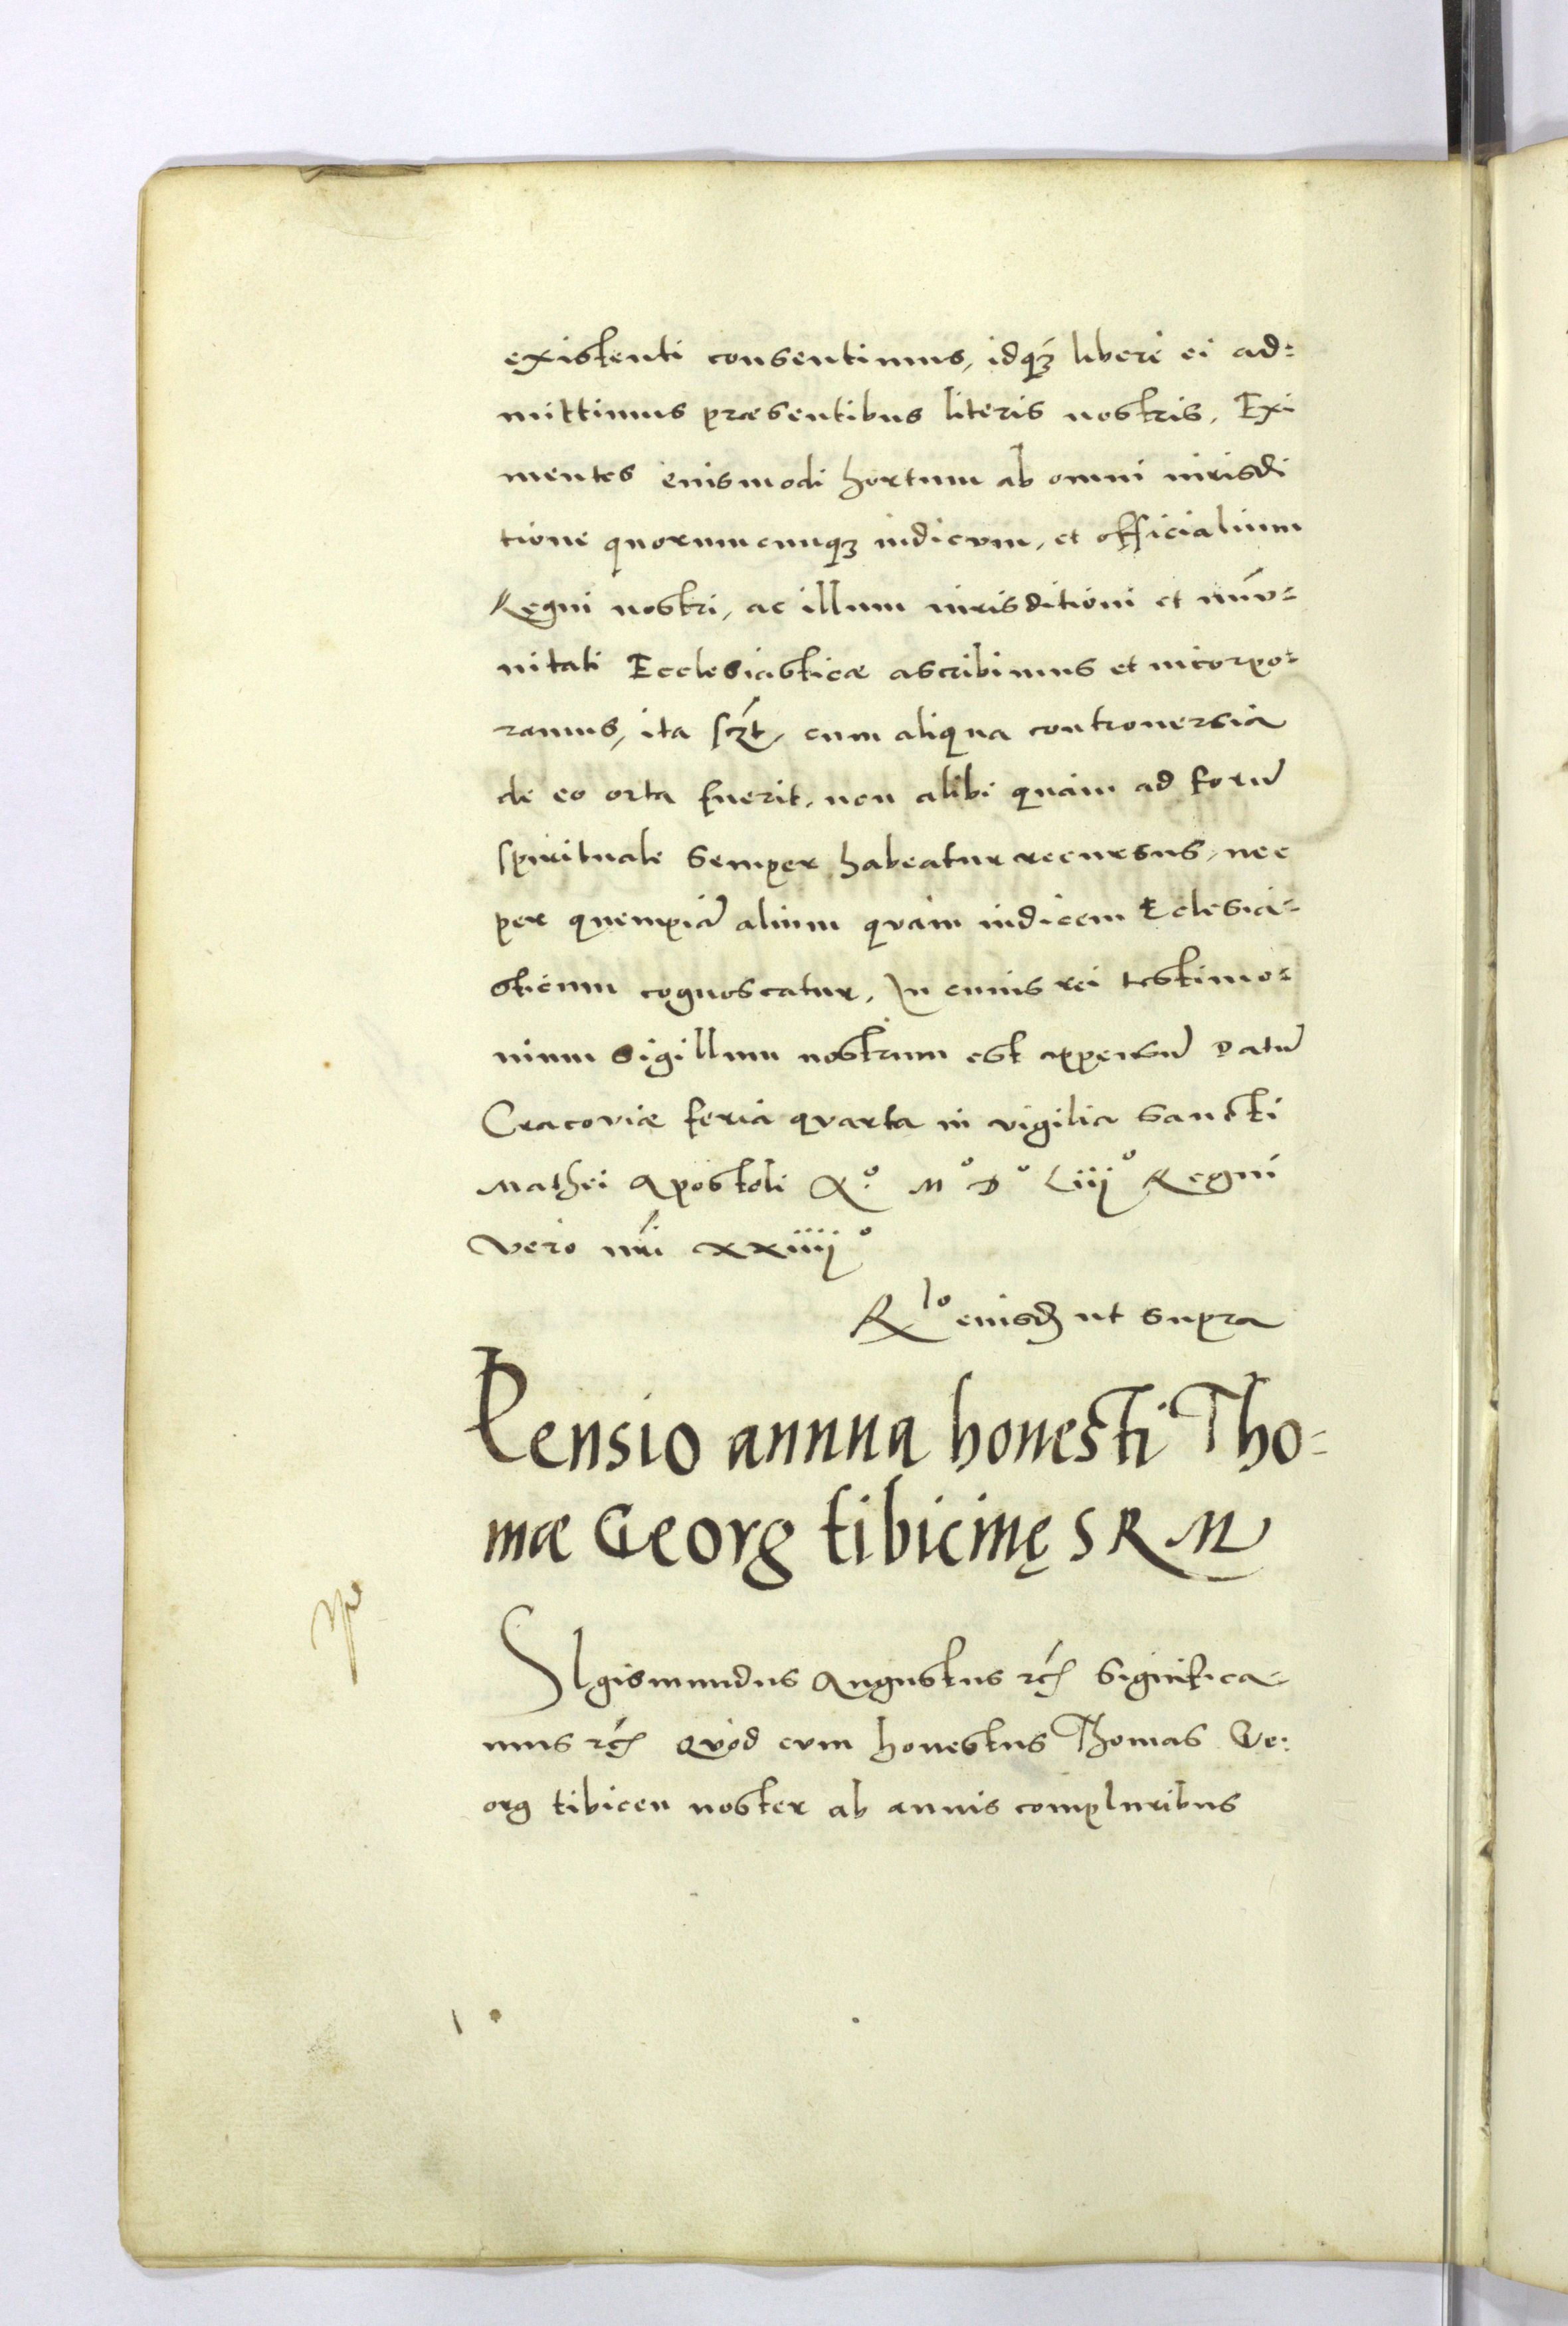 existenti consentimus, idq₃ libere ei ad=
mittimus præsentibus literis nostris. Exi
mentes eiusmodi hortum ab omni iurisdi
tione quorumcunq₃ iudicum, et officialium
Regni nostri, ac illum iurisditioni et
nitati Ecclesiasticæ ascribimus et incorpo=
ramus, ita scz̃t, cum aliqua controuersia
de eo orta fuerit, non alibi quàm ad forũ
spirituale semper habeatur recursus, nec
per quempiã alium quàm iudicem Eclesia=
sticum cognoscatur. In cuius rei testimo=
nium sigillum nostrum est appensũ Datũ
Cracoviæ feria quarta in vigilia Sancti
Mathei Apostoli Aº. Mº Dº Liijº Regni
vero nr̃i xxiiijº
Rˡᵒ eiusd ut supra
Pensio annua honesti Tho=
mæ Georg tibicinę S R M
SIgismundus Augustus rc̃ significa=
mus rc̃ Quòd cum honestus Thomas Ge=
org tibicen noster ab annis compluribus